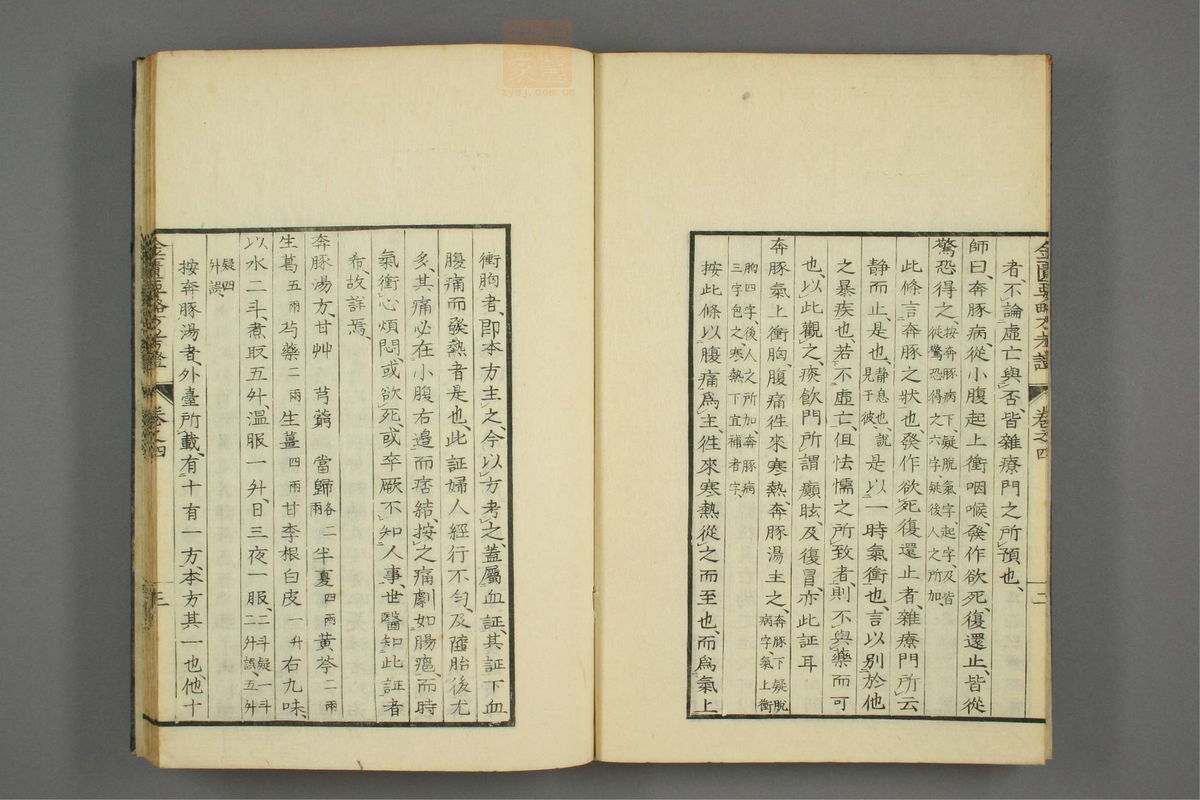 金匱要略方考證 卷之四 二
者、不論虛亡與否、皆雜療門之所預也、
師曰、奔豚病、從小腹起、上衝咽喉、發作欲死、復還止、皆從
驚恐得之、按奔豚病下、疑脫氣字、起字、及皆從驚恐得之六字、疑後人之所加
此條言奔豚之狀也、發作欲死復還止者、雜療門所云
靜而止、是也、靜息也、說見于彼、是以一時氣衝也、言以別於他
之暴疾也、若不虛亡、但怯懦之所致者、則不與藥而可
也、以此觀之、痰飲門所謂癲眩、及復冒、亦此証耳
奔豚氣上衝胸、腹痛往來寒熱、奔豚湯主之、奔豚下、疑脫病字、氣上衝
胸四字、後人之所加、奔豚病三字包之、寒熱下宜補者字、
按此條以腹痛爲主、往來寒熱從之而至也、而爲氣上
衝胸者、卽本方主之、今以方考之、蓋屬血証、其証下血
腹痛而發熱者是也、此証婦人經行不勻、及墮胎後尤
多、其痛必在小腹右邊、而痞結、按之痛劇如腸癰、而時
氣衝心煩悶、或欲死、或卒厥不知人事、世醫知此証者
希、故詳焉、
奔豚湯方、甘艸 芎藭 當歸各二兩 半夏四兩 黃芩二兩
生葛五兩 芍藥二兩 生薑四兩 甘李根白皮一升 右九味、
以水二斗、煮取五升、溫服一升、日三夜一服、二斗疑一斗二升誤、五升
疑四升誤、
按奔豚湯者、外臺所載、有十有一方、本方其一也、他十
金匱要略方考證 卷之四 三